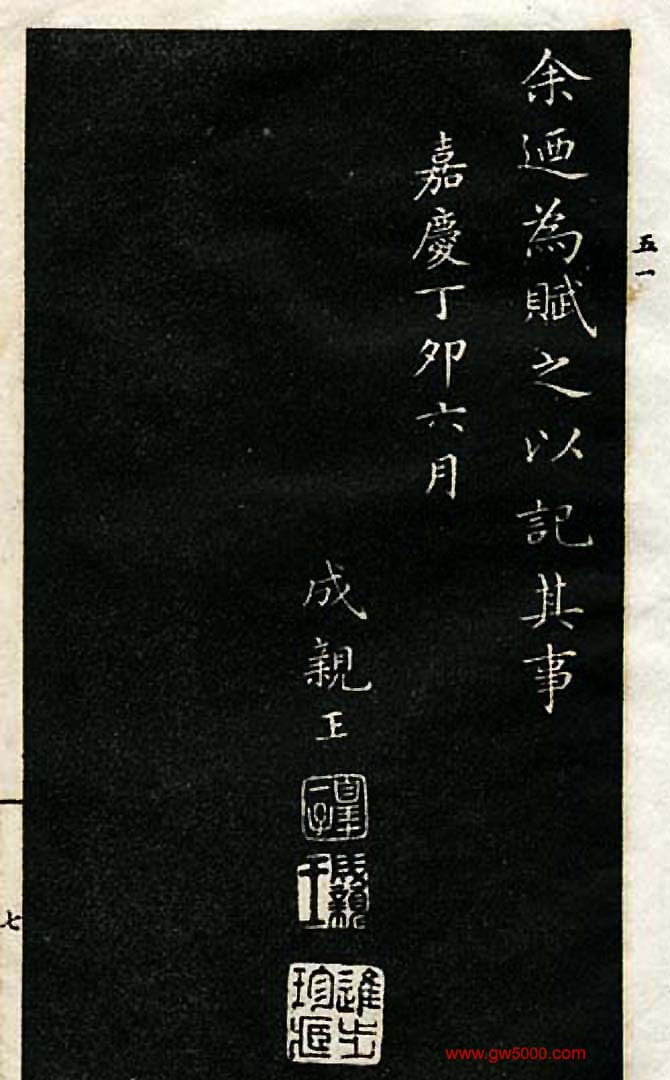 余迺為賦之以記其事
嘉慶丁卯六月
成親王
皇十一子
成親王
五一
七
www.gw5000.com